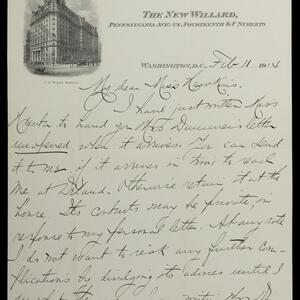 THE NEW WILLARD,
PENNSYLVANIA AVENUE, FOURTEENTH & F STREETS
WASHINGTON, D.C., Feb 11 191
My dear Miss Hawkins.
I have just written Miss
to hand you Mrs letter
unopened, when it arrives. You can send
it to me, if it arrives in time to reach
me at DeLand. Otherwise return it at the
house. Its contents may be private, in
response to my personal letter. At any rate
I do not want to risk any further com-
plications by divulging its advices until I